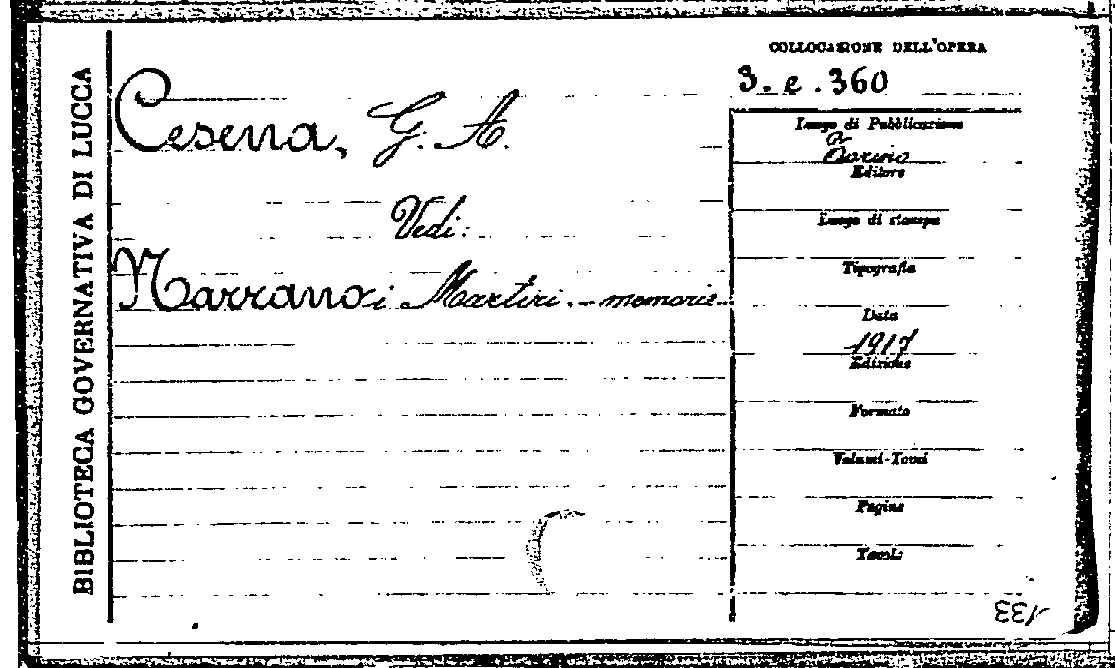 BIBLIOTECA GOVERNATIVA DI LUCCA
COLLOCAZIONE DELL'OPERA
3. e. 360
Cesena, G. A.
Vedi:
Narrano i Martiri - memorie
Luogo di Pubblicazione
Editore
Luogo di stampa
Tipografia
Data
1917
Edizione
Formato
Volumi-Tomi
Pagine
Tavole
133